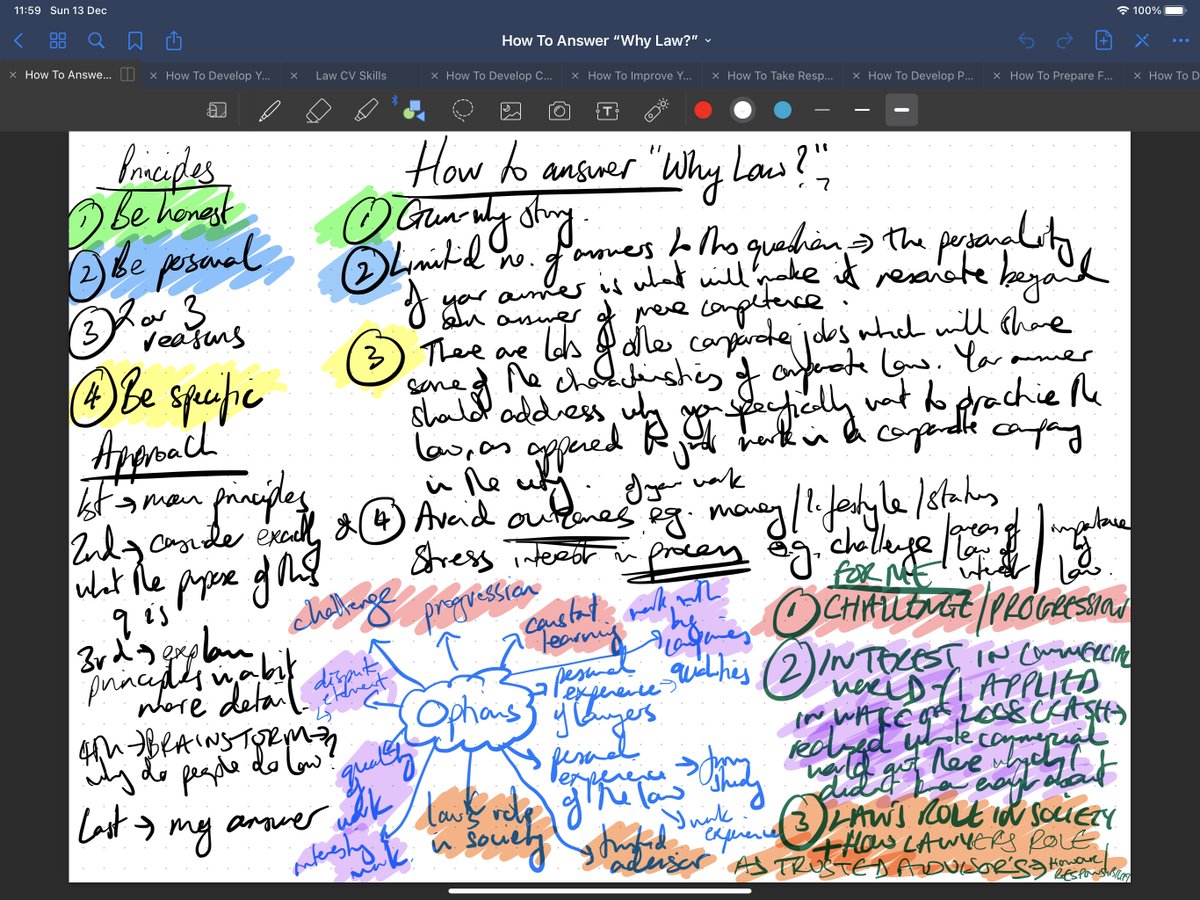 11:59 Sun 13 Dec
100%
How To Answer “Why Law?”
How To Answe...
How To Develop Y...
Law CV Skills
How To Develop C...
How To Improve Y...
How To Take Resp...
How To Develop P...
How To Prepare F...
How To D
Principles
① Be honest
② Be personal
③ 2 or 3
reasons
④ Be specific
Approach
1st → main principles
2nd → consider exactly
what the purpose of this
q is
3rd → explain
principles in a bit
more detail.
4th → BRAINSTORM →
why do people do law?
Last → my answer
How to answer "Why Law?"
① story.
② Limited no. of answers to this question ⇒ the personality
of your answer is what will make it resonate beyond
an answer of mere competence.
③ There are lots of other corporate jobs which will share
some of the characteristics of corporate law. Your answer
should address why you specifically want to practice the
law, as opposed to just work in a corporate company
in the city.
of your work
④ Avoid outcomes e.g. money / lifestyle / status
Stress interest in process e.g. challenge / areas of law of interest / importance of law.
Options
challenge
progression
constant
learning
work with
big
companies
qualities
personal
experience
of lawyers
personal
experience
of the law
→ study
→ work experience
trusted
advisor
law's role
in society
quality
of
work
interesting
work
FOR ME
① CHALLENGE/PROGRESSION
② INTEREST IN COMMERCIAL
WORLD - I APPLIED
IN WAKE OF 2008 CRASH →
realised whole commercial
world out there which I
didn't know enough about
③ LAW'S ROLE IN SOCIETY
+ HOW LAWYERS ROLE
AS TRUSTED ADVISORS →
RESPONSIBILITY